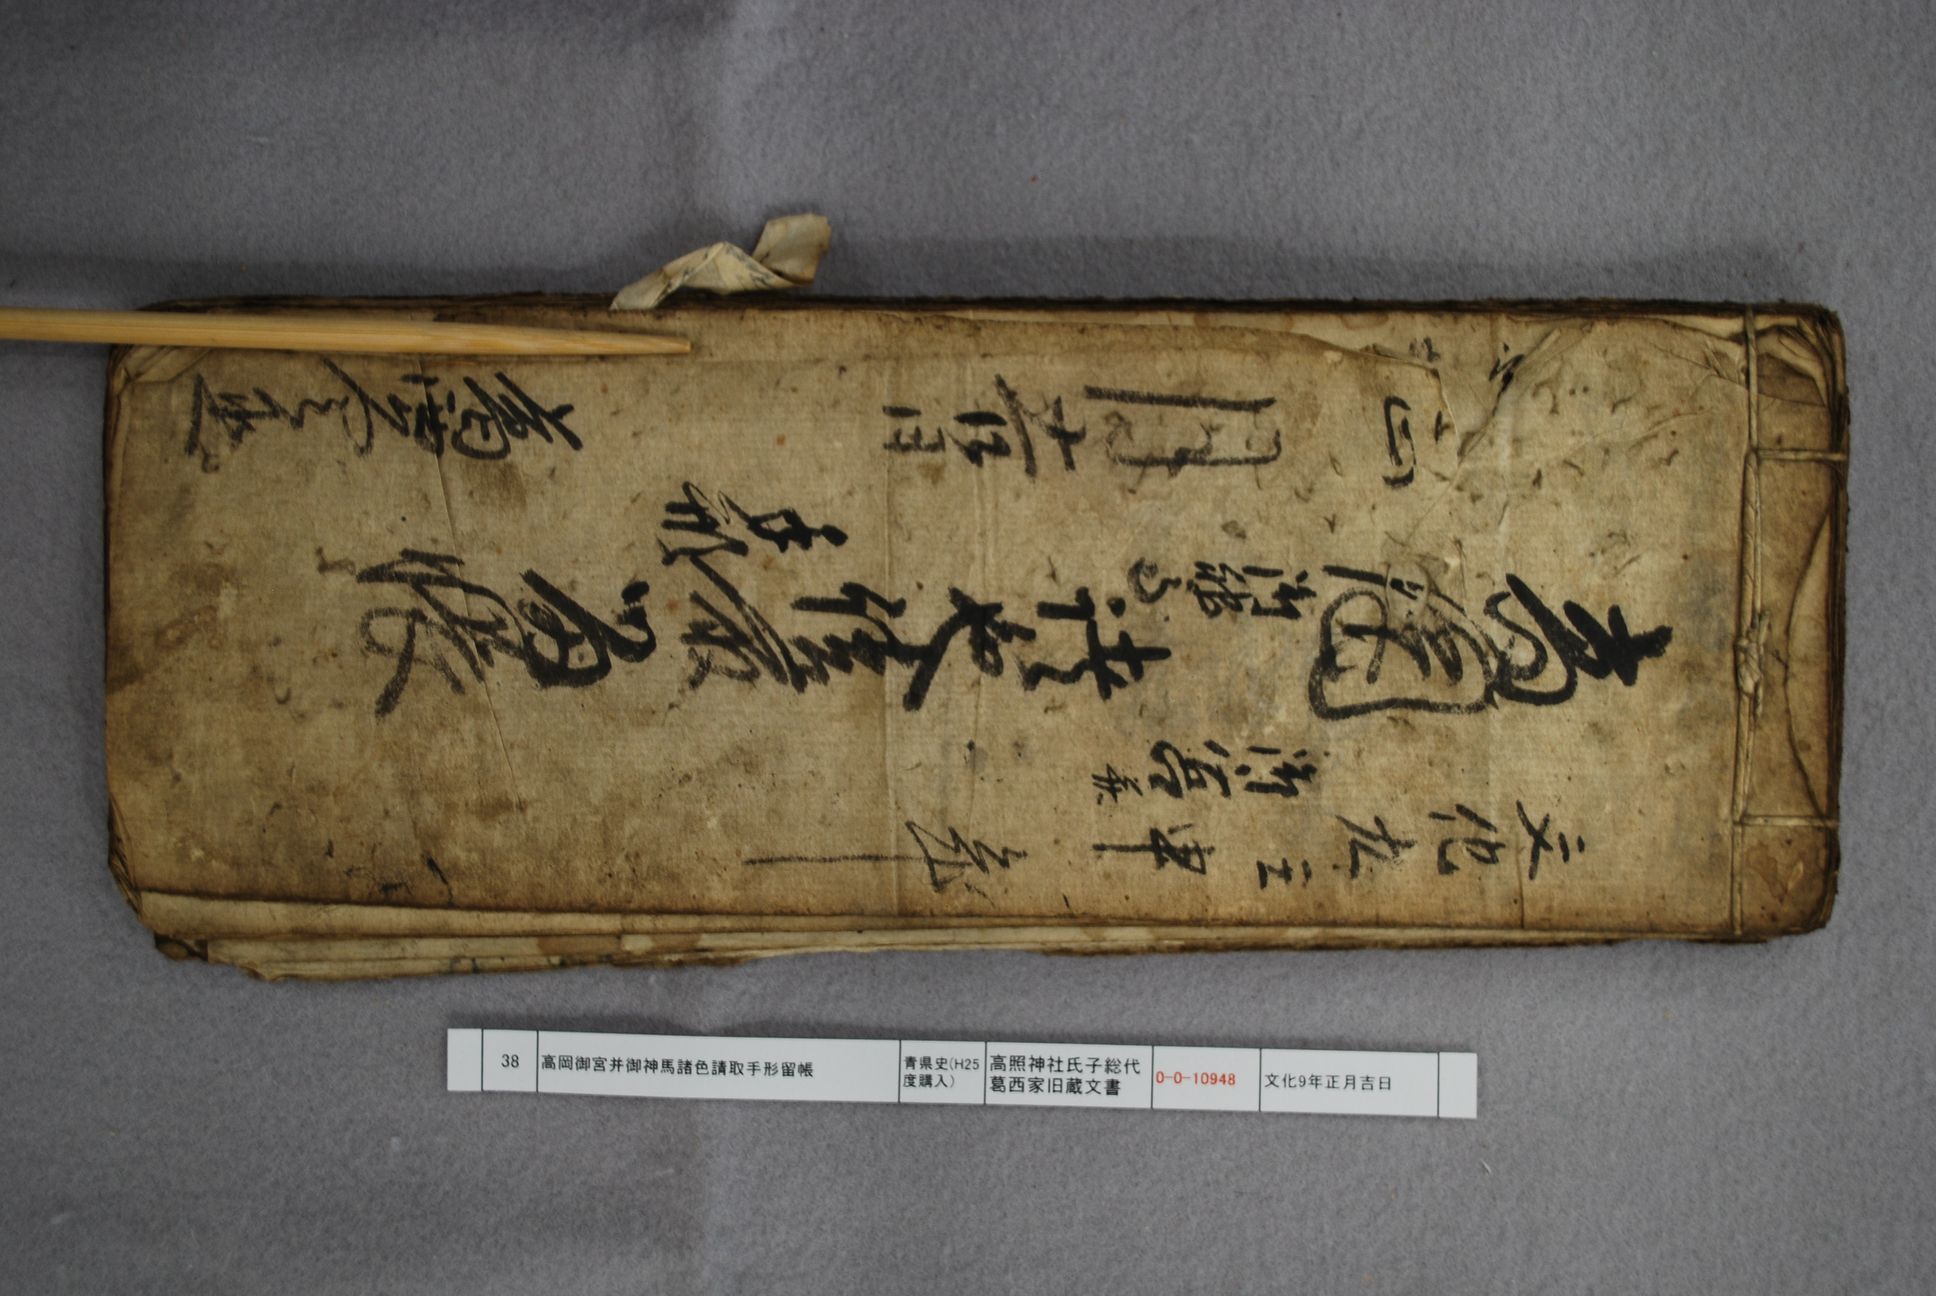 文化九壬申
高岡御宮并御神馬諸色請取手形留帳
正月吉日
38
高岡御宮并御神馬諸色請取手形留帳
青県史(H25
度購入)
高照神社氏子総代
葛西家旧蔵文書
0-0-10948
文化9年正月吉日